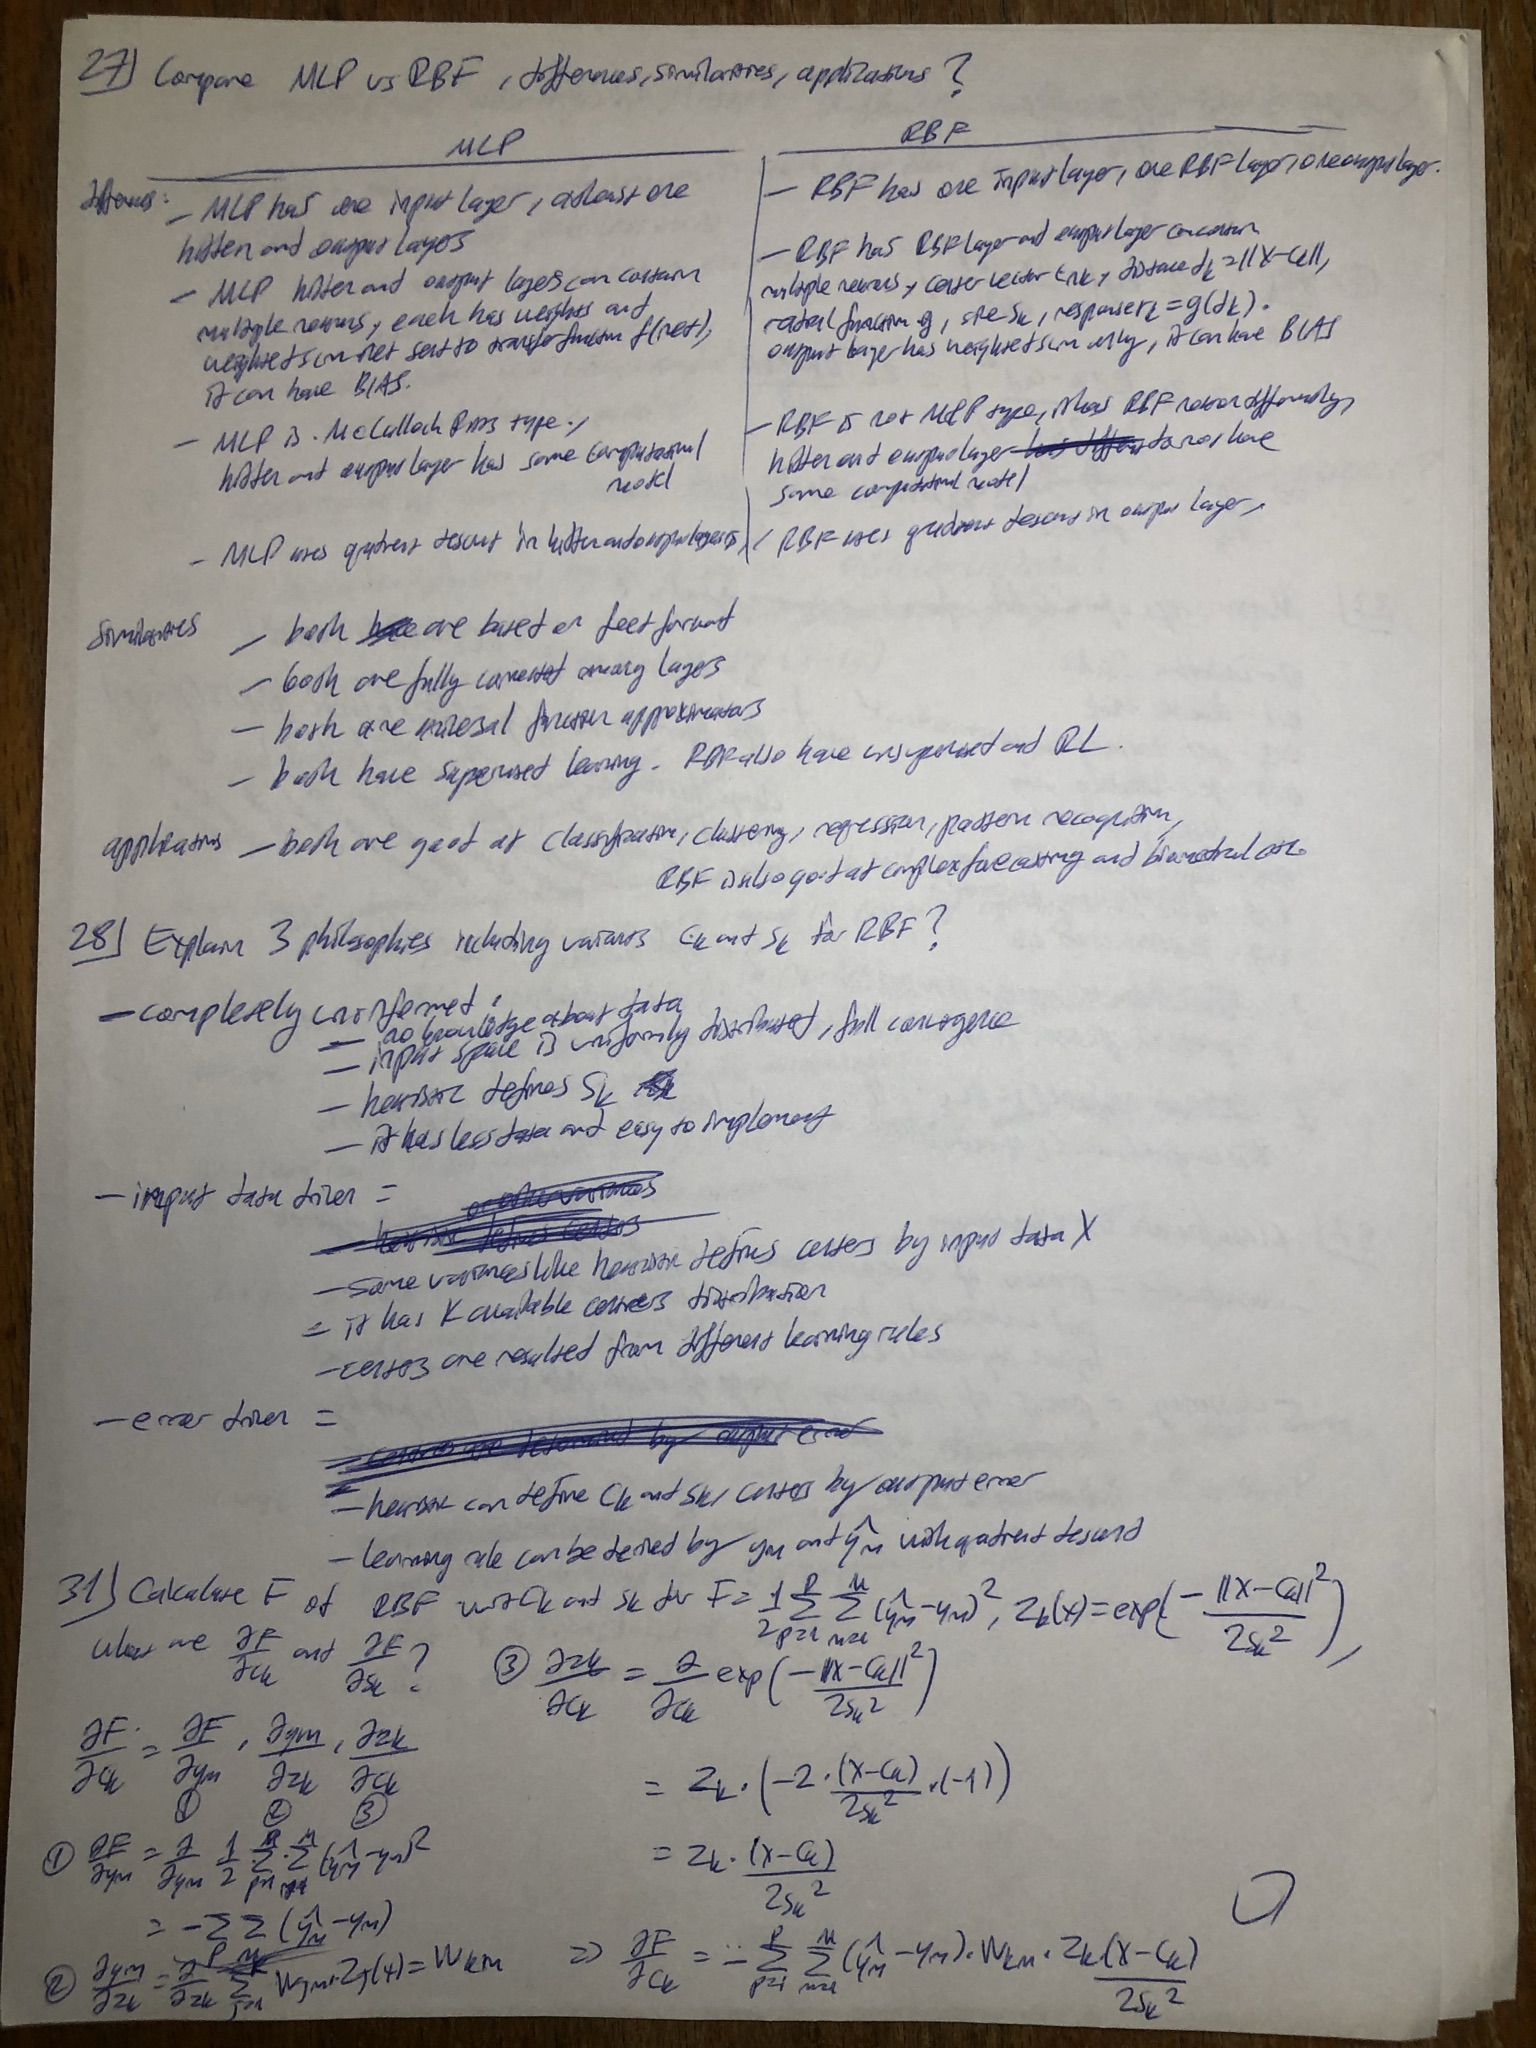 27) Compare MLP vs RBF, differences, similarities, applications?
MLP
RBF
differences:
- MLP has one input layer, at least one
hidden and output layers
- MLP hidden and output layers can contain
multiple neurons, each has weights and
weighted sum net sent to transfer function f(net),
it can have BIAS.
- MLP is McCulloch Pitts type,
hidden and output layer has same computational
model
- MLP uses gradient descent in hidden and output layers
- RBF has one input layer, one RBF layer, one output layer.
- RBF has RBF layer and output layer can contain
multiple neurons, center vector Cnk, distance dk = ||X-Ck||,
radial function g, size Sk, response rk = g(dk).
output layer has weighted sum only, it can have BIAS
- RBF is not MLP type, it has RBF neuron differently,
hidden and output layer does not have
same computational model
- RBF uses gradient descent in output layer,
Similarities
- both are based on feed forward
- both are fully connected among layers
- both are universal function approximators
- both have supervised learning. RBF also have unsupervised and RL.
applications
- both are good at classification, clustering, regression, pattern recognition,
RBF is also good at complex forecasting and biomedical etc.
28) Explain 3 philosophies including variants Ck and Sk for RBF?
- completely uninformed:
- no knowledge about data
- input space is uniformly distributed, full convergence
- heuristic defines Sk
- it has less data and easy to implement
- input data driven =
- same variances like heuristic defines centers by input data X
- it has K available centers distribution
- centers are resulted from different learning rules
- error driven =
- heuristic can define Ck and Sk, centers by output error
- learning rule can be derived by ym and ŷm with gradient descent
31) Calculate F of RBF wrt Ck and Sk for F = 1/2 Σ_{p=1}^{P} Σ_{m=1}^{M} (ŷm - ym)², Zk(x) = exp(- ||X-Ck||² / 2Sk²),
What are ∂F/∂Ck and ∂F/∂Sk?
∂F/∂Ck = ∂F/∂ym · ∂ym/∂zk · ∂zk/∂Ck
① ② ③
① ∂F/∂ym = ∂/∂ym 1/2 Σ_{p=1}^{P} Σ_{m=1}^{M} (ŷm - ym)²
= - Σ Σ (ŷm - ym)
② ∂ym/∂zk = ∂/∂zk Σ Wjm · Zj(x) = Wkm
③ ∂zk/∂Ck = ∂/∂Ck exp(- ||X-Ck||² / 2Sk²)
= Zk · (-2 · (X-Ck) / 2Sk² · (-1))
= Zk · (X-Ck) / 2Sk²
=> ∂F/∂Ck = - Σ_{p=1}^{P} Σ_{m=1}^{M} (ŷm - ym) · Wkm · Zk (X-Ck) / 2Sk²